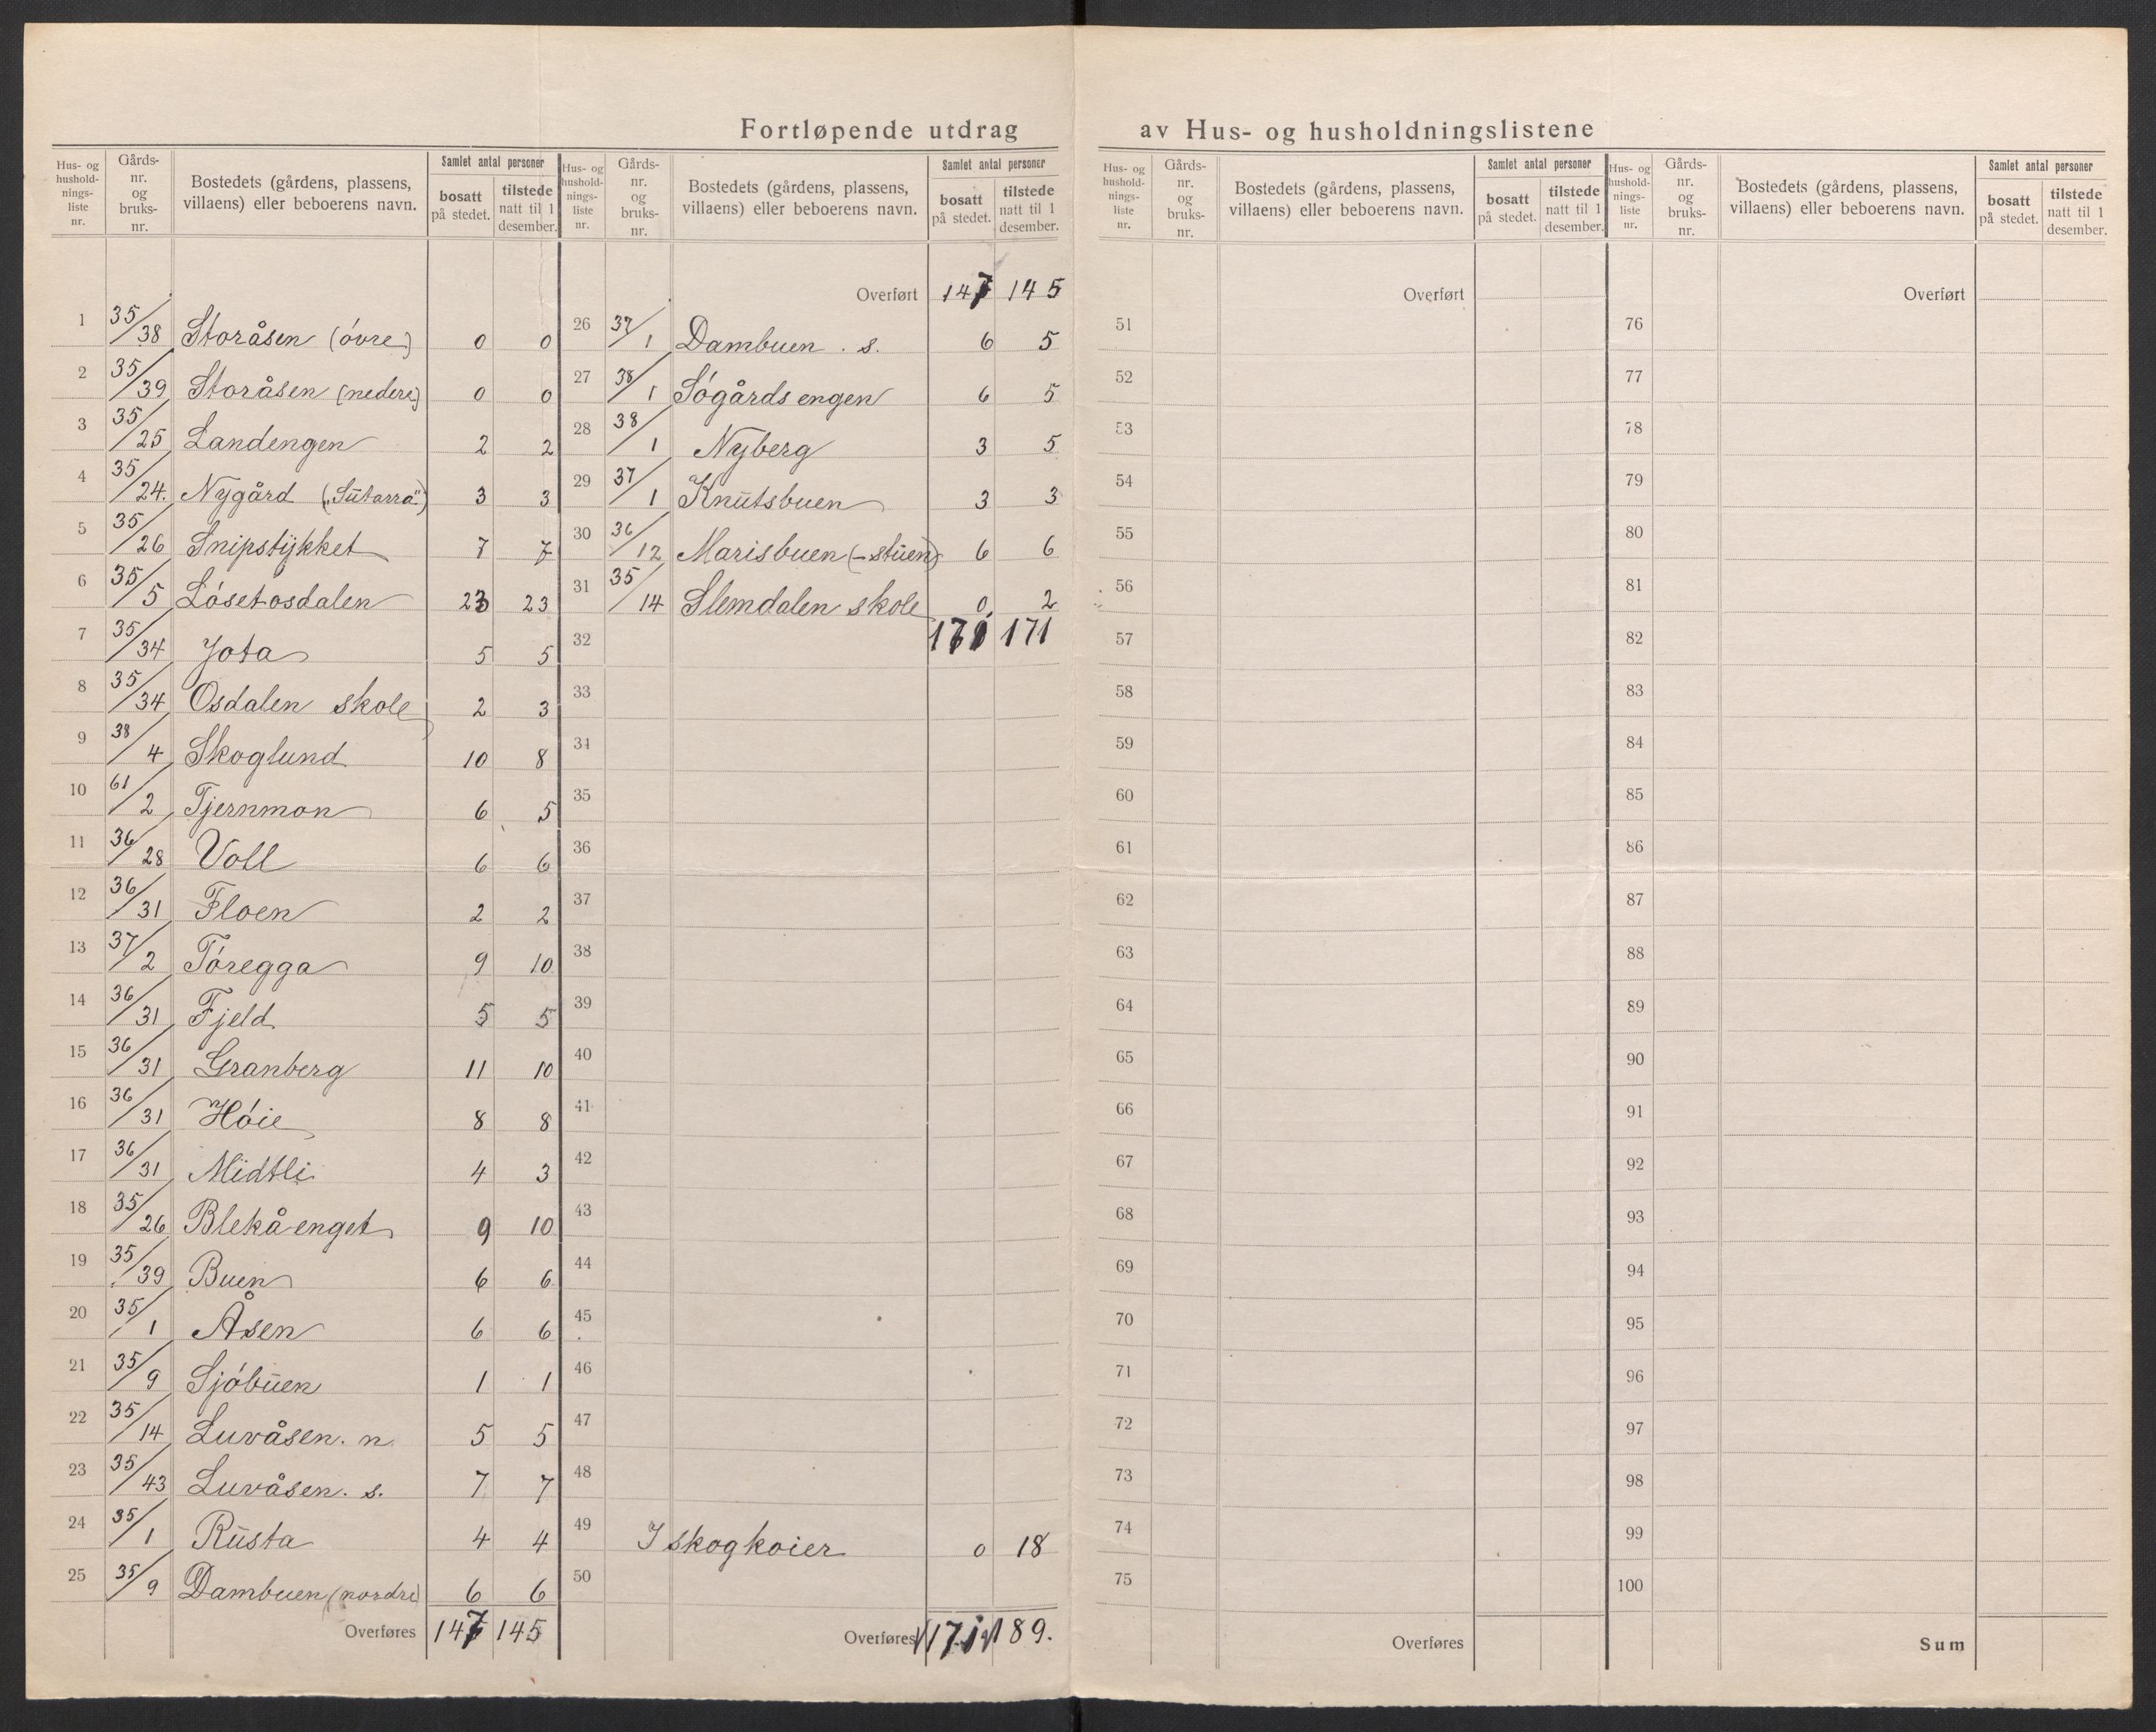 Fortløpende utdrag av Hus- og husholdningslistene
Hus- og hushold-nings-liste nr. | Gårds-nr. og bruks-nr. | Bostedets (gårdens, plassens, villaens) eller beboerens navn. | Samlet antal personer | bosatt på stedet. | tilstede natt til 1 desember.
1 35/38 Storåsen (óvre) 0 0
2 35/39 Storåsen (nedere) 0 0
3 35/25 Landengen 2 2
4 35/24. Nygård („Sutarra") 3 3
5 35/26 Snipstykket 7 7
6 35/5 Lósetosdalen 23 23
7 35/34 Jota 5 5
8 35/34 Osdalen skole 2 3
9 38/4 Skoglund 10 8
10 61/2 Tjernmon 6 5
11 36/28 Voll 6 6
12 36/31 Floen 2 2
13 37/2 Tóregga 9 10
14 36/31 Fjeld 5 5
15 36/31 Granberg 11 10
16 36/31 Hóie 8 8
17 36/31 Midtli 4 3
18 35/26 Blekåenget 9 10
19 35/39 Buen 6 6
20 35/1 Åsen 6 6
21 35/9 Sjóbuen 1 1
22 35/14 Luvåsen. n. 5 5
23 35/43 Luvåsen. s. 7 7
24 35/1 Rusta 4 4
25 35/9 Dambuen (nordre) 6 6
Overføres 147 145
Hus- og hushold-nings-liste nr. | Gårds-nr. og bruks-nr. | Bostedets (gårdens, plassens, villaens) eller beboerens navn. | Samlet antal personer | bosatt på stedet. | tilstede natt til 1 desember.
Overført 147 145
26 37/1 Dambuen . s. 6 5
27 38/1 Sógårdsengen 6 5
28 38/1 Nyberg 3 5
29 37/1 Knutsbuen 3 3
30 36/12 Marisbuen (-stuen) 6 6
31 35/14 Slemdalen skole 0 2
32 171 171
33
34
35
36
37
38
39
40
41
42
43
44
45
46
47
48
49 I skogkoier 0 18
50
Overføres 171 189.
Hus- og hushold-nings-liste nr. | Gårds-nr. og bruks-nr. | Bostedets (gårdens, plassens, villaens) eller beboerens navn. | Samlet antal personer | bosatt på stedet. | tilstede natt til 1 desember.
Overført
51
52
53
54
55
56
57
58
59
60
61
62
63
64
65
66
67
68
69
70
71
72
73
74
75
Overføres
Hus- og hushold-nings-liste nr. | Gårds-nr. og bruks-nr. | Bostedets (gårdens, plassens, villaens) eller beboerens navn. | Samlet antal personer | bosatt på stedet. | tilstede natt til 1 desember.
Overført
76
77
78
79
80
81
82
83
84
85
86
87
88
89
90
91
92
93
94
95
96
97
98
99
100
Sum